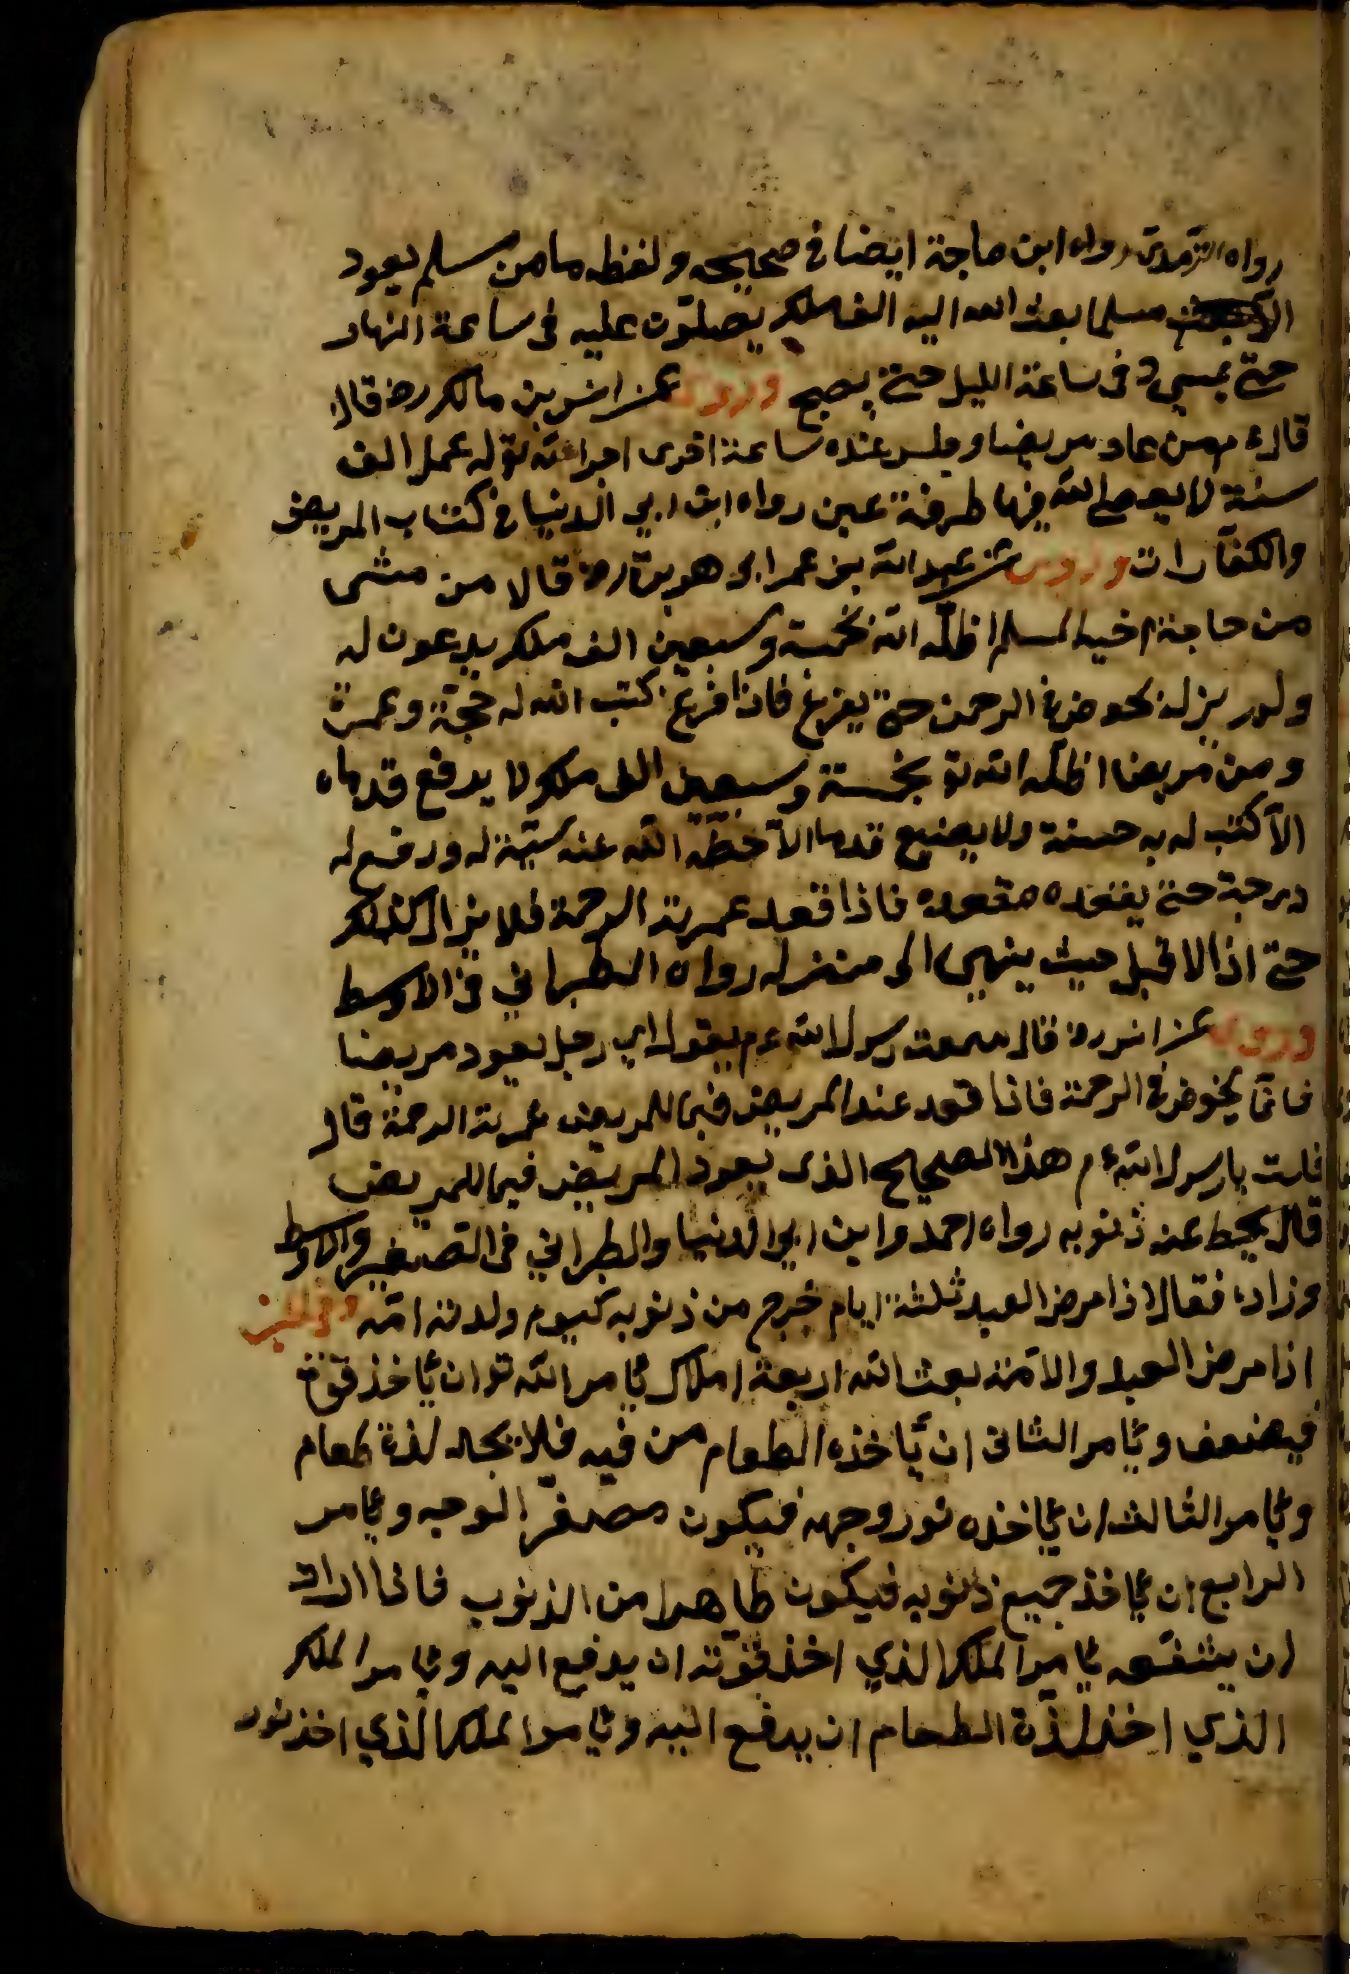 رواه الترمذى رواه ابن ماجة ايضا فى صحيحه ولفظه ما من مسلم يعود
مسلما بعث الله اليه الف ملك يصلون عليه فى ساعة النهار
حتى يمسى وفى ساعة الليل حتى يصبح وروى عن انس بن مالك رض قال
قال ءم من عاد مريضا وجلس عنده ساعة اجرى الله تع له عمل الف
سنة لا يعصى الله فيها طرفة عين رواه ابن ابي الدنيا فى كتاب المريض
والكفارات وروى عن عبد الله بن عمر ابو هريرة رض قالا من مشى
من حاجة اخيه المسلم اظله الله بخمسة وسبعين الف ملك يدعون له
ولم يزل يخوض فى الرحمن حتى يفرغ فاذا فرغ كتب الله له حجة وعمرة
ومن مريضا اظله الله تع بخمسة وسبعين الف ملك ولا يدفع قدماه
الا كتب له به حسنة ولا يضيع قدما الا حطه الله عنه سيئة له ورفع له
درجة حتى يقعده مقعده فاذا قعد عمرته الرحمة فلا يزال كذلك
حتى اذا لا قبل حيث ينهى الى منزله رواه الطبراني فى الاوسط
وروى عن انس رض قال سمعت رسول الله ءم يقول اي رجل يعود مريضا
فانما يخوض فى الرحمة فاذا قعد عند المريض فيما للمريض عمرته الرحمة قال
قلت يا رسول الله ءم هذا الصحيح الذى يعود المريض فيما للمريض
قال يحط عنه ذنوبه رواه احمد وابن ابي الدنيا والطبراني فى الصغير والاوسط
وزاد فقال اذا مرض العبد ثلثة ايام خرج من ذنوبه كيوم ولدته امه وفى الخبر
اذا مرض العبد والامة بعث الله اربعة املاك يأمر الله تع ان يأخذ قوته
فيضعف ويأمر الثانى ان يأخذه الطعام من فيه فلا يجد لذة طعام
ويأمر الثالث ان يأخذه نور وجهه فيكون مصفر الوجه ويأمر
الرابع ان يأخذ جميع ذنوبه فيكون طاهرا من الذنوب فاذا اراد
ان يشفه يأمر الملك الذي اخذ قوته ان يدفع اليه ويأمر الملك
الذي اخذ لذة الطعام ان يدفع اليه ويأمر الملك الذي اخذ نور